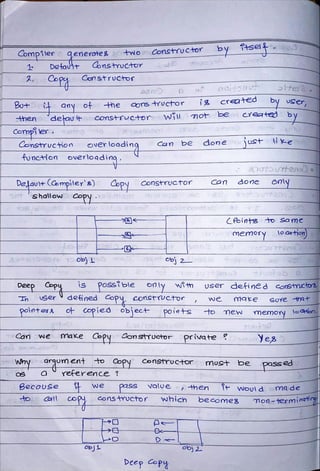 Compiler generates two constructor by itself.
1. Default Constructor
2. Copy Constructor
But if any of the constructor is created by user,
then default constructor will not be created by
compiler.
Construction overloading can be done just like
function overloading.
Default (Compiler's) Copy constructor can done only
shallow copy.
(Points to same
memory location)
obj 1 obj 2
Deep Copy is possible only with user defined constructors
In user defined copy constructor, we make sure that
pointers of copied object points to new memory location.
Can we make copy constructor private ? Yes
Why argument to copy constructor must be passed
as a reference ?
Because if we pass value, then it would made
to call copy constructor which becomes non-terminating
obj 1 obj 2
Deep Copy